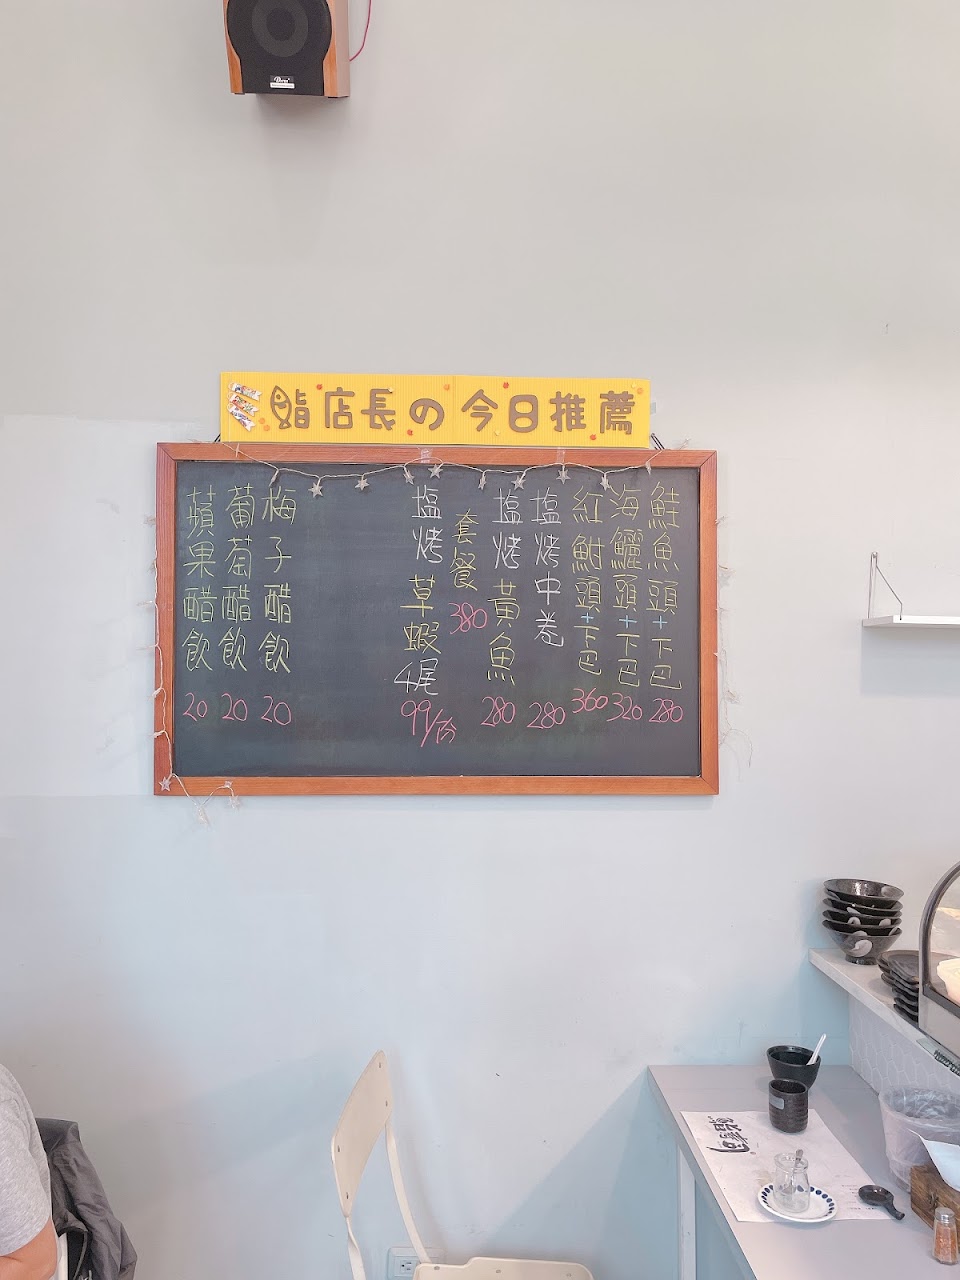 鮨店長の今日推薦
鮭魚頭+下巴 280
海鱺頭+下巴 320
紅魽頭+下巴 360
塩烤中卷 280
塩烤黃魚 280
套餐 380
塩烤草蝦4尾 99/份
梅子醋飲 20
葡萄醋飲 20
蘋果醋飲 20